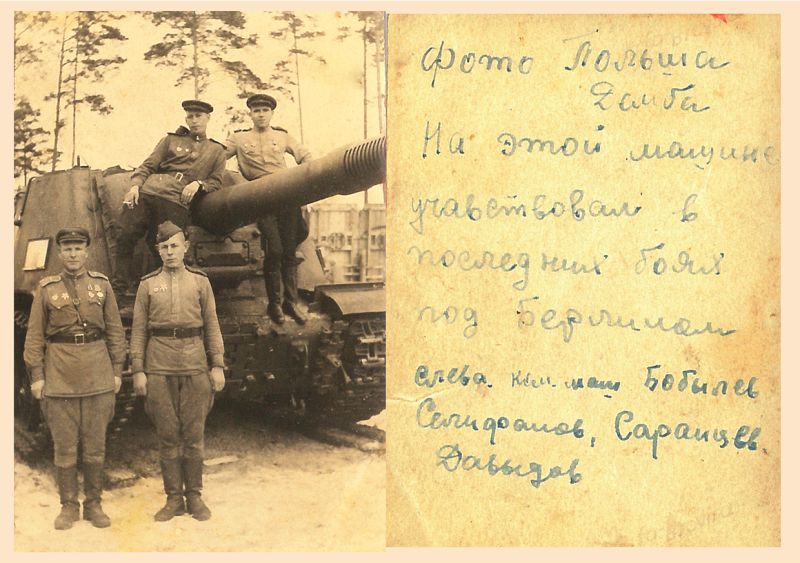 Фото Польша
Демба
На этой машине
учавствовал в
последних боях
под Берлином
слева. ком. маш Бобылев
Селифанов, Саранцев
Давыдов